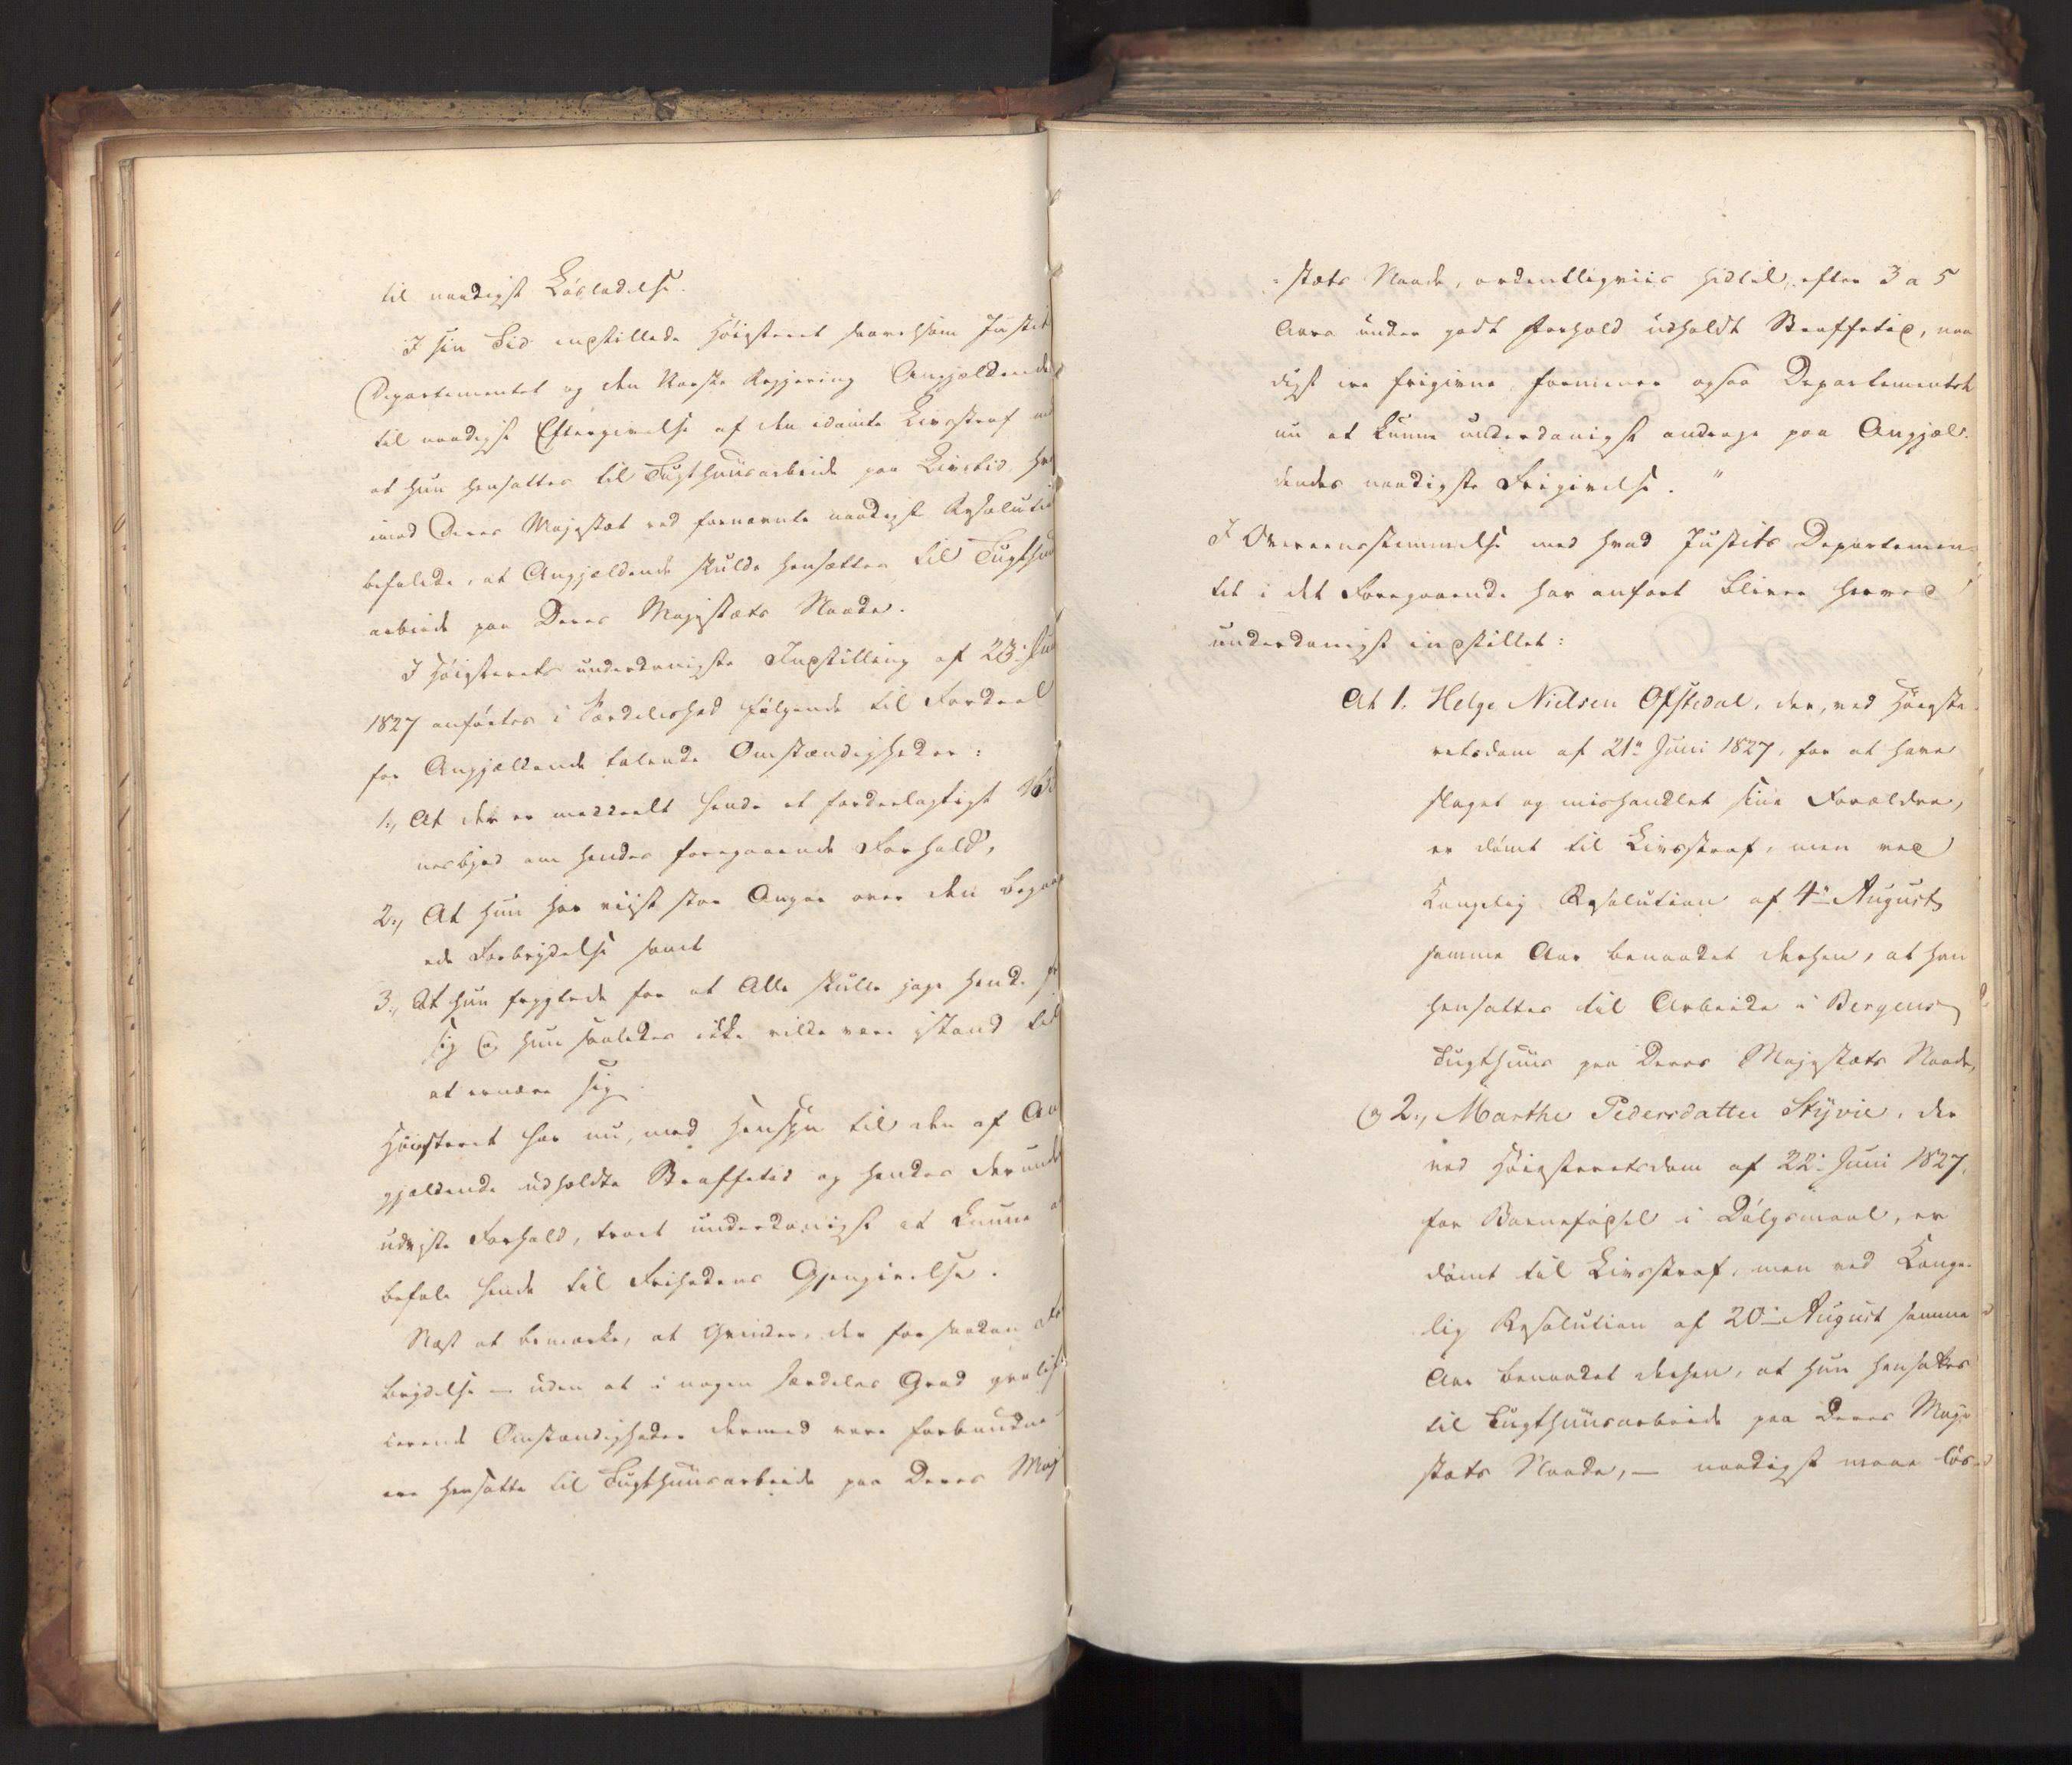 til naadigst Løsladelse.
I sin Tid indstillede Høiesteret saavelsom Justits
Departementet og den Norske Regjering Angjældende
til naadigst Eftergivelse af den idømte Livsstraf mod
at hun hensattes til Tugthuusarbeide paa Livstid, hvor
imod Deres Majestæt ved fornævnte naadigst Resolution
befalede, at Angjældende skulde hensættes til Tugthuus
arbeide paa Deres Majestæts Naade.
I Høiesterets underdanigste Indstilling af 23. Juni
1827 anførtes i Særdeleshed følgende til Fordeel
for Angjældende talende Omstændigheder:
1., At der er meddeelt hende et fordeelagtigt Vid
nesbyrd om hendes foregaaende Forhold,
2., At hun har viist stor Anger over den begaa
ede Forbrydelse samt
3., At hun frygtede for at Alle skulle jage hende fra
sig og hun saaledes ikke vilde være istand til
at ernære sig.
Høiesteret har nu, med Hensyn til den af An
gjældende udholdte Straffetid og hendes derunder
udviste Forhold, troet underdanigst at kunne an
befale hende til Frihedens Gjengivelse.
Næst at bemærke, at Qvinder, der for saadan For
brydelse – uden at i nogen særdeles Grad qvalifi
cerende Omstændigheder dermed vare forbundne
ere hensatte til Tugthuusarbeide paa Deres Maje
=stæts Naade, ordentligviis hidtil, efter 3 a 5
Aars under godt Forhold udholdt Straffetid, naa
digst ere frigivne, formener ogsaa Departementet
nu at kunne underdanigst andrage paa Angjæl-
dendes naadigste Frigivelse."
I Overeensstemmelse med hvad Justits Departemen-
tet i det Foregaaende har anført bliver herved
underdanigst indstillet:
At 1. Helge Nielsen Ofstedal, der, ved Høieste
retsdom af 21de Juni 1827, for at have
slaget og mishandlet sine Forældre,
er dømt til Livsstraf, men ved
Kongelig Resolution af 4de August
samme Aar benaadet derhen, at han
hensattes til Arbeide i Bergens
Tugthuus paa Deres Majestæts Naade,
og 2., Marthe Pedersdatter Styvie, der
ved Høiesteretsdom af 22. Juni 1827,
for Barnefødsel i Dølgsmaal, er
dømt til Livsstraf, men ved Konge-
lig Resolution af 20de August samme
Aar benaadet derhen, at hun hensattes
til Tugthuusarbeide paa Deres Maje
stæts Naade, – naadigst maae løs-